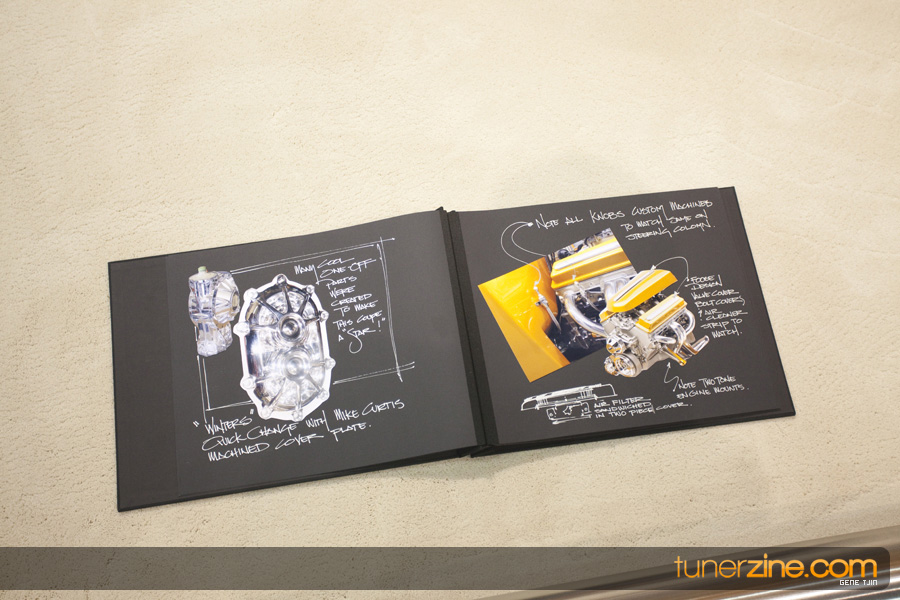 MANY COOL
ONE-OFF
PARTS
WERE
CREATED
TO MAKE
THIS COUPE
A "STAR!"
"WINTERS"
QUICK CHANGE WITH MIKE CURTIS
MACHINED COVER PLATE.
NOTE ALL KNOBS CUSTOM MACHINED
TO MATCH SAME ON
STEERING COLUMN.
FOOSE
DESIGN
VALVE COVER
BOLT COVERS,
& AIR
CLEANER
STRIP TO
MATCH.
NOTE TWO TONE
ENGINE MOUNTS.
AIR FILTER
SANDWICHED
IN TWO PIECE COVER.
tunerzine.com
GENE TJIN